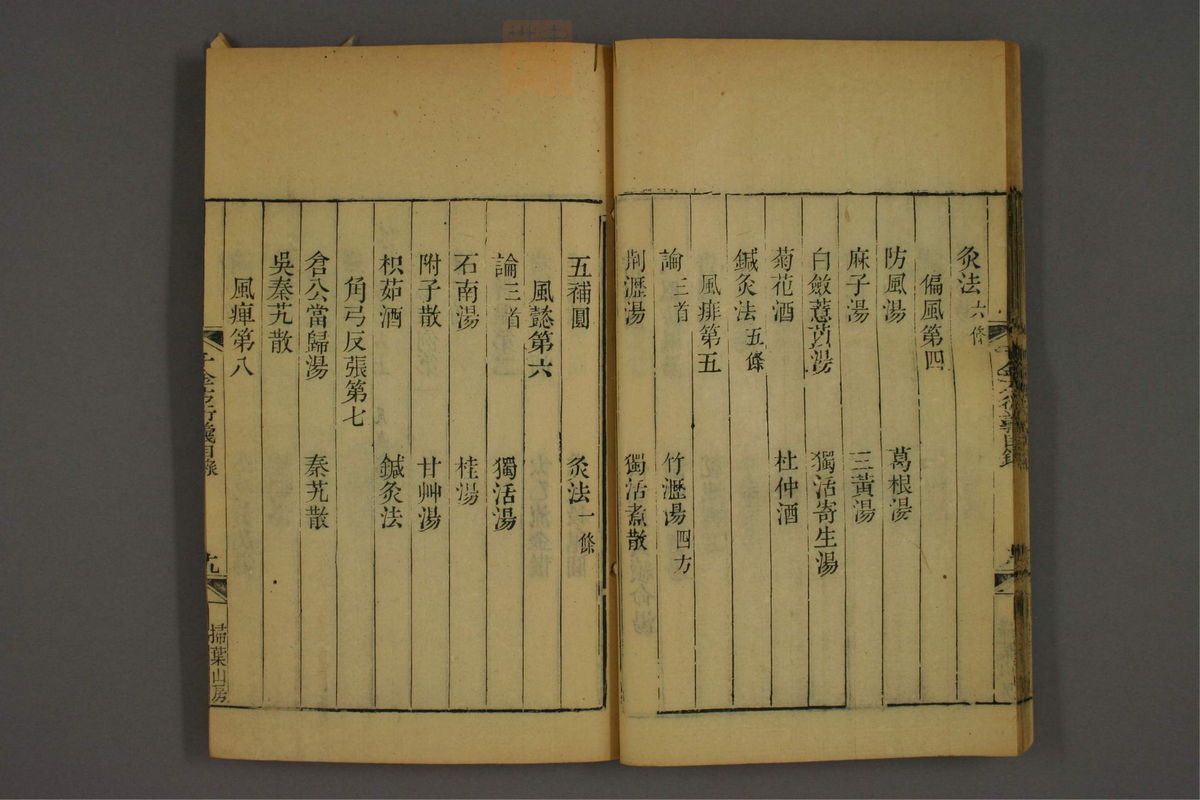 灸法 六條
偏風第四
防風湯 葛根湯
麻子湯 三黃湯
白斂薏苡湯 獨活寄生湯
菊花酒 杜仲酒
鍼灸法 五條
風痱第五
論三首 竹瀝湯 四方
荆瀝湯 獨活煮散
五補圓 灸法 一條
風懿第六
論三首 獨活湯
石南湯 桂湯
附子散 甘艸湯
枳茹酒 鍼灸法
角弓反張第七
倉公當歸湯 秦艽散
吳秦艽散
風痺第八
千金方衍義目錄 十九 掃葉山房